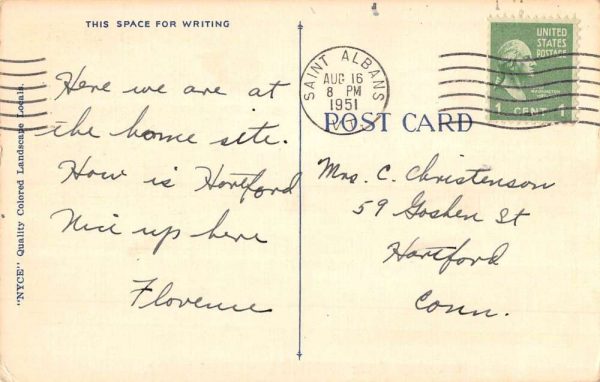 THIS SPACE FOR WRITING
Here we are at
the home site.
How is Hartford
Nice up here
Florence
"NYCE" Quality Colored Landscape Locals.
SAINT ALBANS
AUG 16
8 PM
1951
VT.
UNITED
STATES
POSTAGE
1 CENT 1
POST CARD
Mrs. C. Christenson
59 Goshen St
Hartford
Conn.